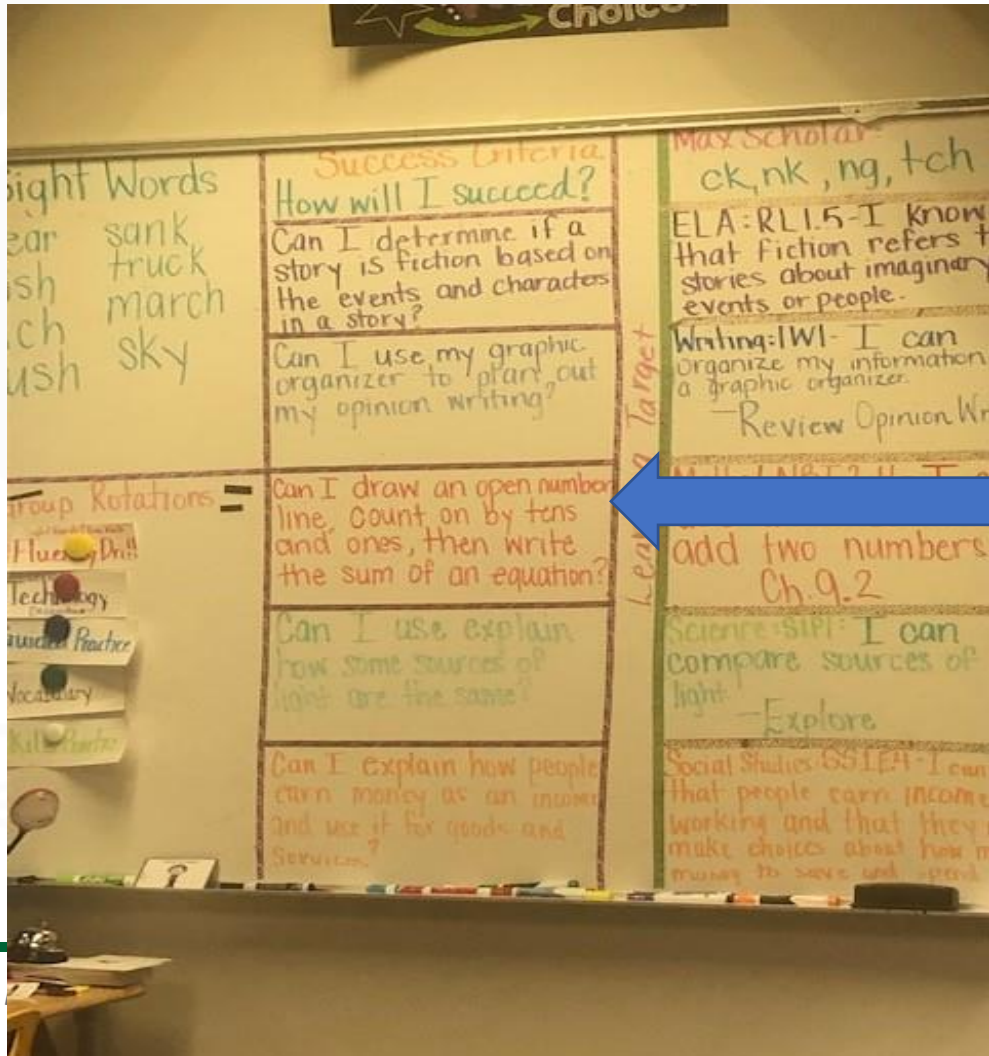 Choice
Sight Words
ear sank
sh truck
ch march
ush sky
Group Rotations =
Fluency Drill
Technology
Guided Practice
Vocabulary
Skill Practice
Success Criteria
How will I succeed?
Can I determine if a
story is fiction based on
the events and characters
in a story?
Can I use my graphic
organizer to plan out
my opinion writing?
Can I draw an open number
line, count on by tens
and ones, then write
the sum of an equation?
Can I use explain
how some sources of
light are the same?
Can I explain how people
earn money as an income
and use it for goods and
services?
Learning Target
Max Scholar:
ck, nk, ng, tch
ELA: RL1.5-I know
that fiction refers t
stories about imaginary
events or people.
Writing: 1W1- I can
organize my information
a graphic organizer.
-Review Opinion Wr
add two numbers
Ch. 9.2
Science: S1P1: I can
compare sources of
light.
-Explore
Social Studies: SS1E4-I can
that people earn income
working and that they
make choices about how m
money to save and spend